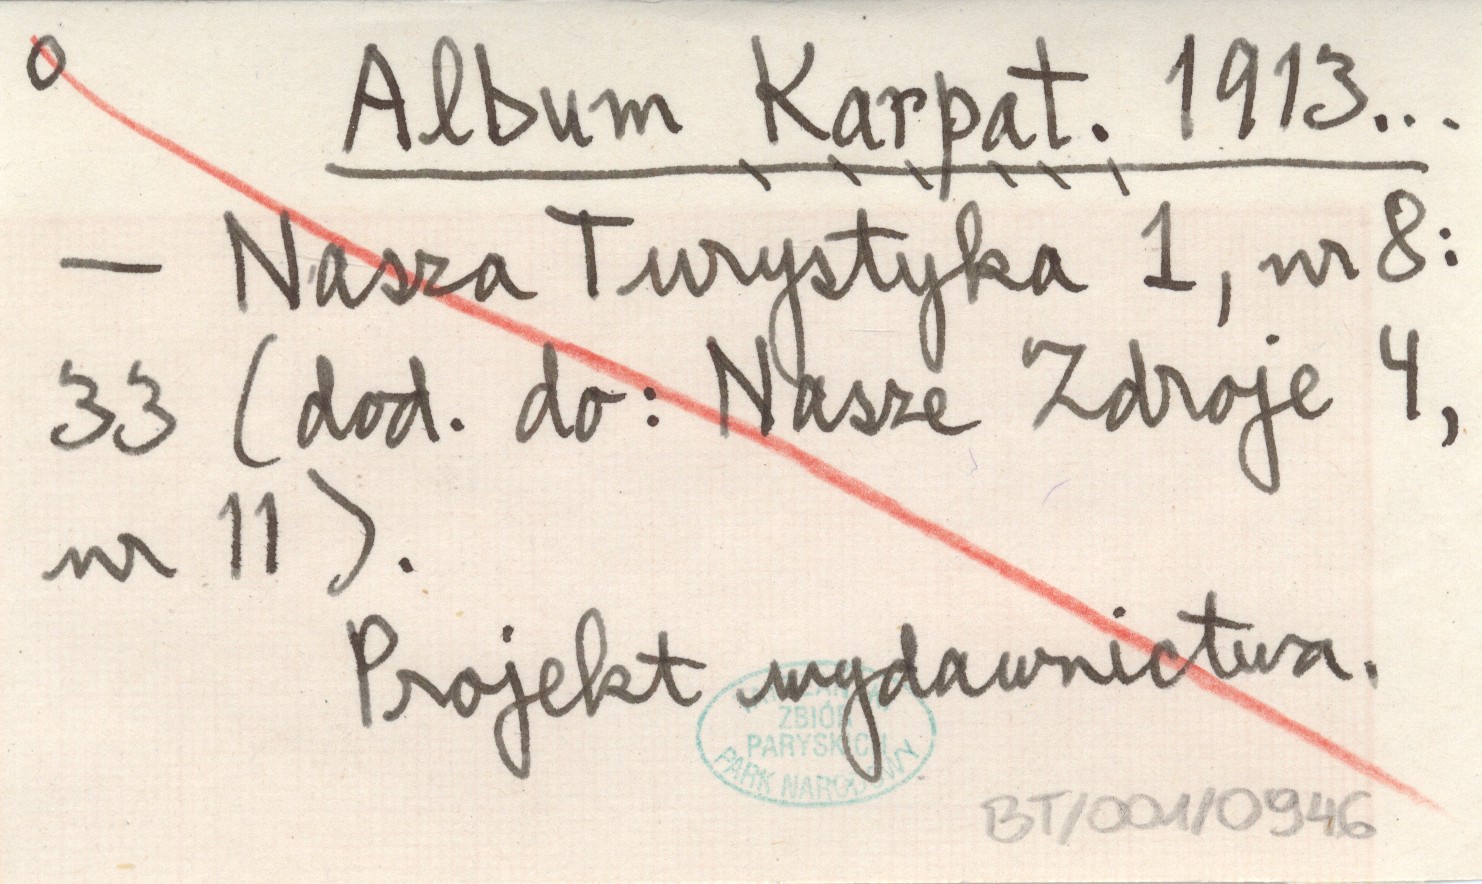 o Album Karpat. 1913...
— Nasza Turystyka 1, nr 8:
33 (dod. do: Nasze Zdroje 4,
nr 11).
Projekt wydawnictwa.
ZBIÓR
PARYSKICH
PARK NARODOWY
BT/001/0946